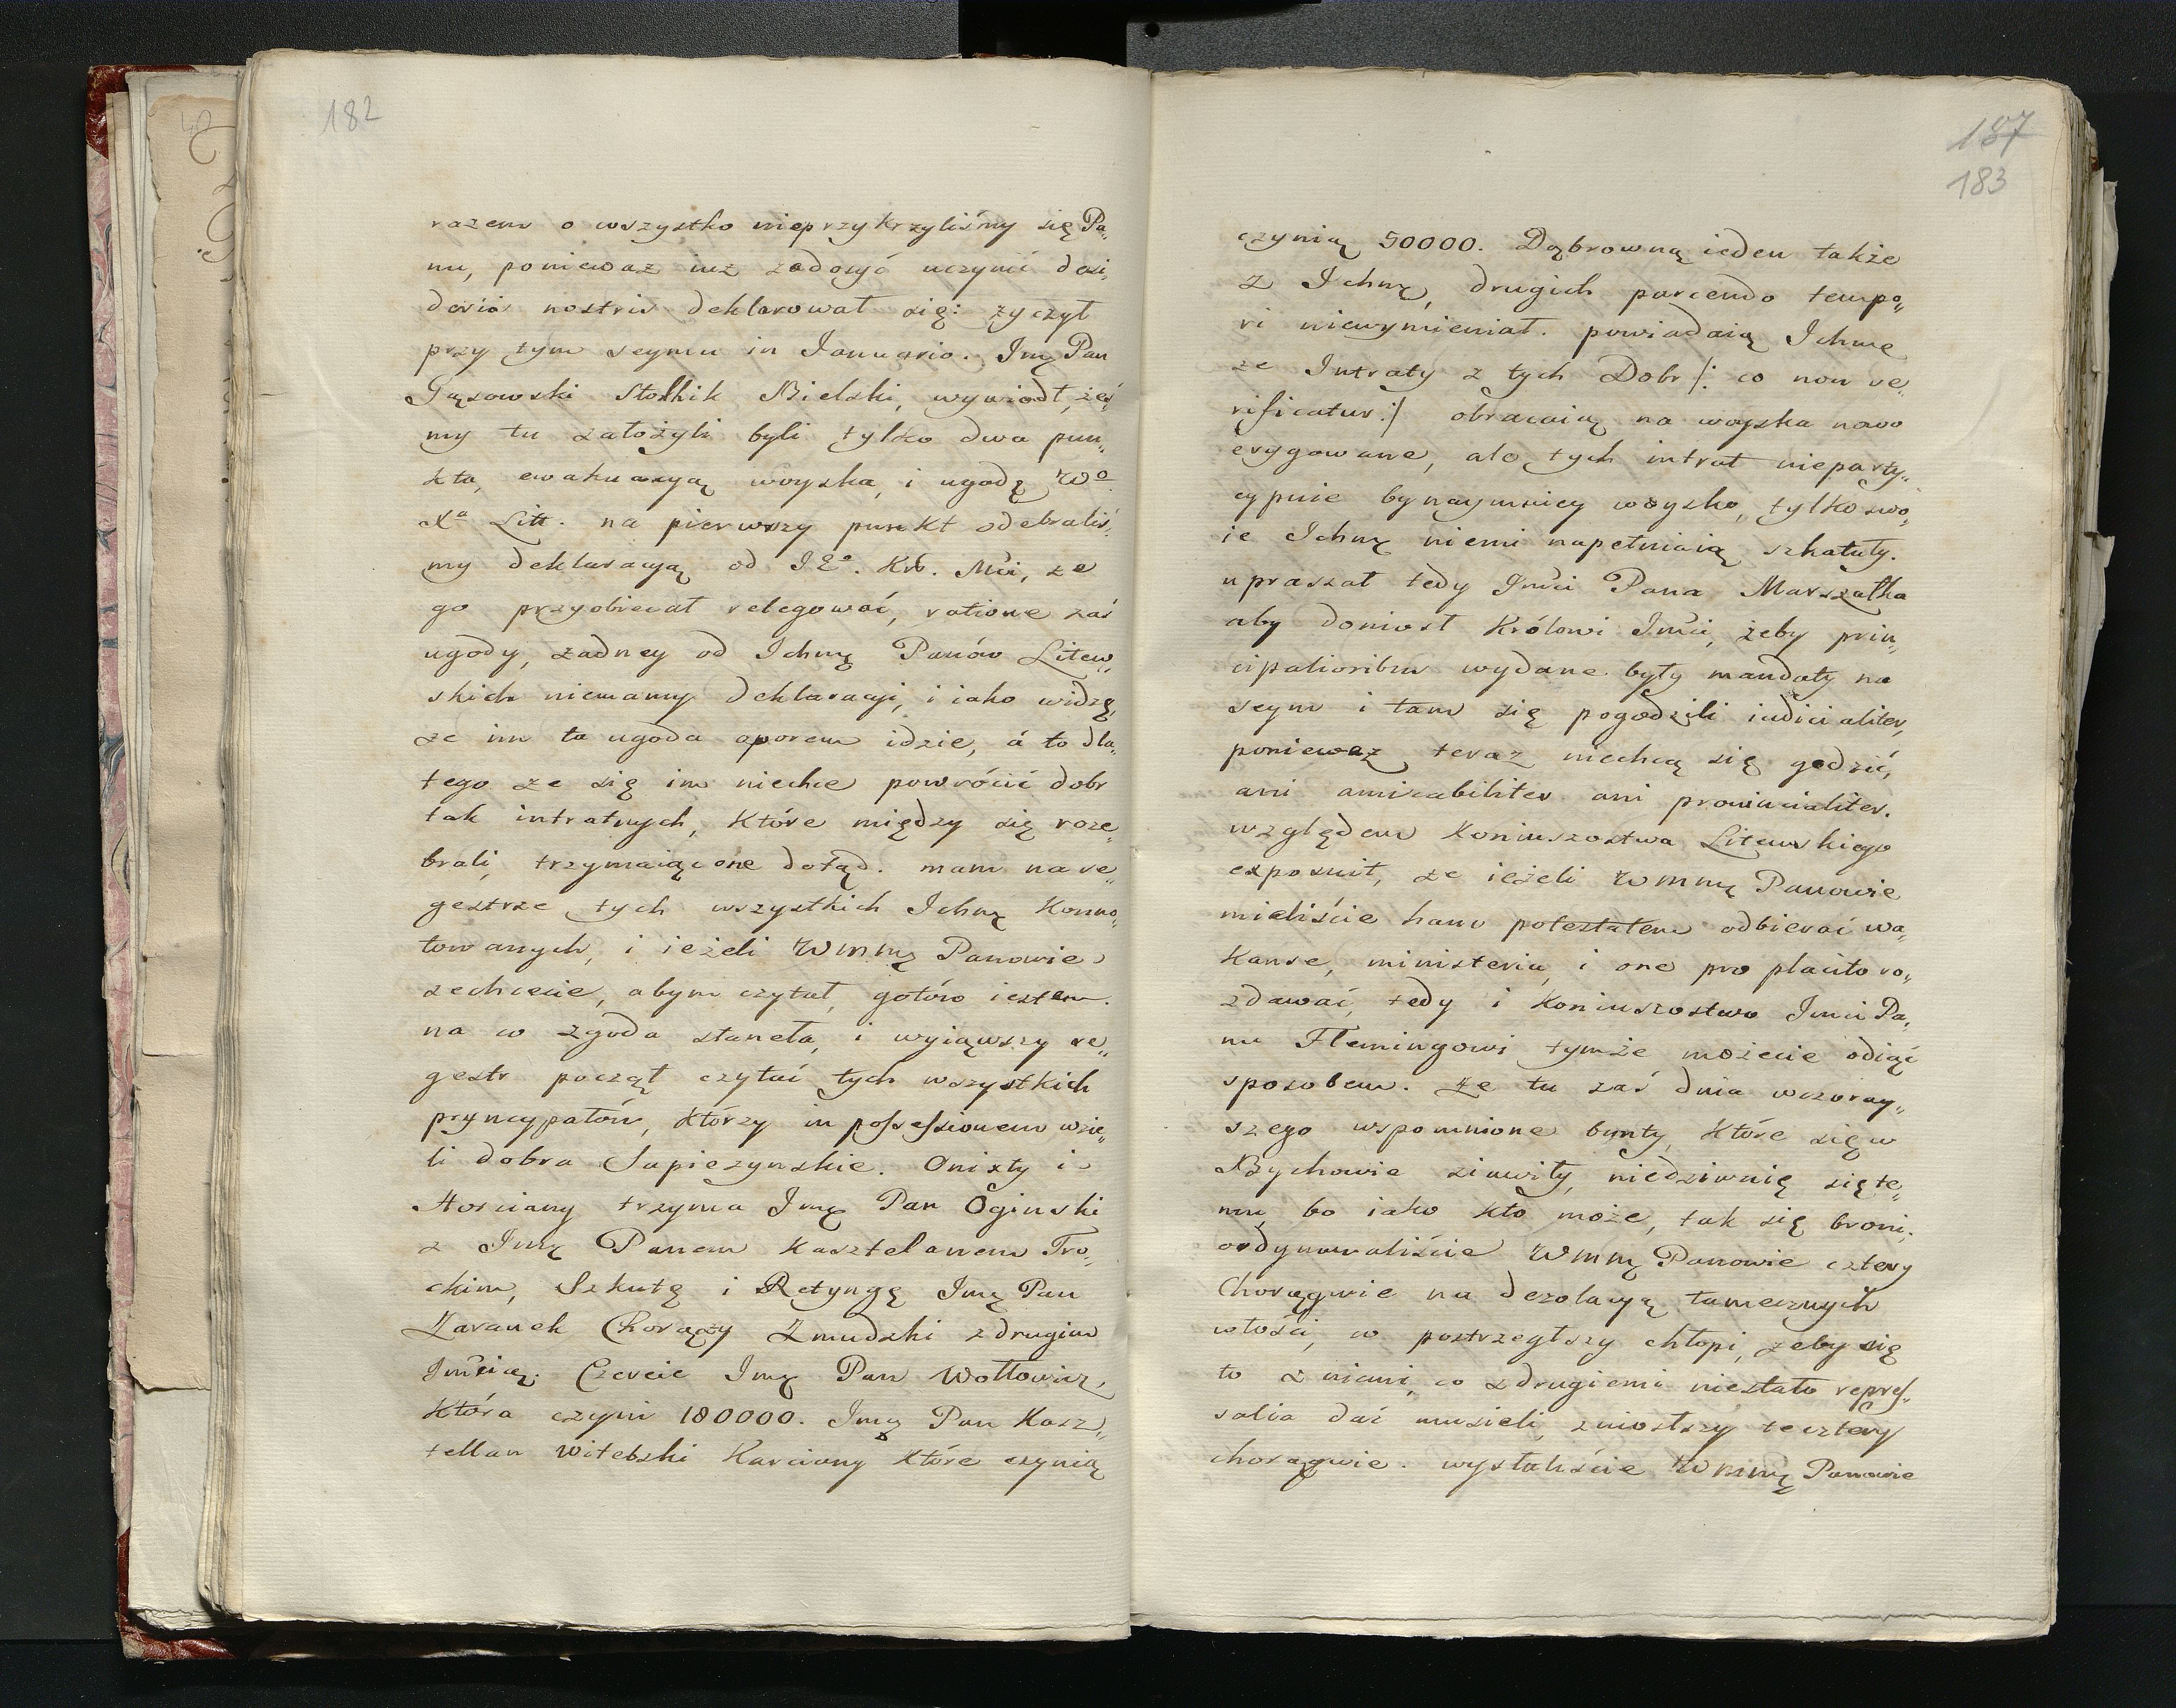 182
razem o wszystko nieprzykrzyliśmy się Pa„
nu, ponieważ iuż zadosyć uczynić desi„
deriis nostris deklarował się: życzył
przy tym seymu in Januario. Imę Pan
Gąsowski Stolnik Bielski, wywiodł, żeś„
my tu założyli byli tylko dwa pun„
kta, ewakuacyą woyska, i ugodę Wo
Xa Litt. na pierwszy punkt odebraliś„
my deklaracyą od Kr. Mci, że
go przyobiecał relegować, ratione zaś
ugody, żadney od Ichmę Panów Litew„
skich niemamy deklaracyi, i iako widzę,
że im ta ugoda oporem idzie, á to dla„
tego że się im niechce powrócić dobr
tak intratnych, które między się roze„
brali, trzymaiąc one dotąd. mam na re„
gestrze tych wszystkich Ichmę konno„
towanych, i ieżeli Wmmę Panowie
zechcecie, abym czytał, gotów iestem.
na co zgoda staneła, i wyiąwszy re„
gestr począł czytać tych wszystkich
pryncypałów, którzy in possessionem wzie„
li dobra Sapieżynskie. Onixty i
Hosciany trzyma Imę Pan Oginski
z Imę Panem Kasztelanem Tro„
ckim, Szkutę i Retyngę Imę Pan
Zaranek Chorąży Zmudzki z drugim
Imścią. Czereie Imę Pan Wołłowicz,
która czyni 180000. Imę Pan Kasz„
tellan Witebski Karciany które czynią
187
183
czynią 50000. Dąbrowną ieden także
z Ichmę, drugich parcendo tempo„
ri niewymieniał. powiadaią Ichmę
że Intraty z tych Dobr /: co non ve„
rificatur :/ obracaią na woyska nowo
erygowane, ale tych intrat nieparty„
cypuie bynaymniey woysko, tylko swo„
ie Ichmę niemi napełniaią szkatuły.
upraszał tedy Imci Pana Marszałka
aby doniosł Królowi Imci, żeby prin„
cipalioribus wydane były mandaty na
seym i tam się pogodzili iudicialiter,
ponieważ teraz niechcą się godzić,
ani amicabiliter ani provincialiter.
względem Koniuszostwa Litewskiego
exposuit, że ieżeli Wmmę Panowie
mieliście hanc potestatem odbierać wa„
kanse, ministeria, i one pro placito ro„
zdawać, tedy i Koniuszostwo Imci Pa„
nu Flemingowi tymże możecie odiąć
sposobem. Że tu zaś dnia wczoray„
szego wspomnione bunty, które się w
Bychowie ziawiły, niedziwuię się te„
mu, bo iako kto może, tak się broni.
ordynowaliście Wmmę Panowie cztery
Chorągwie na dezolacyą tamecznych
włości, co postrzegłszy chłopi, żeby się
to z niemi, co z drugiemi niestało repres„
salia dać musieli, zniosłszy te cztery
chorągwie. wysłaliście Wmmę Panowie